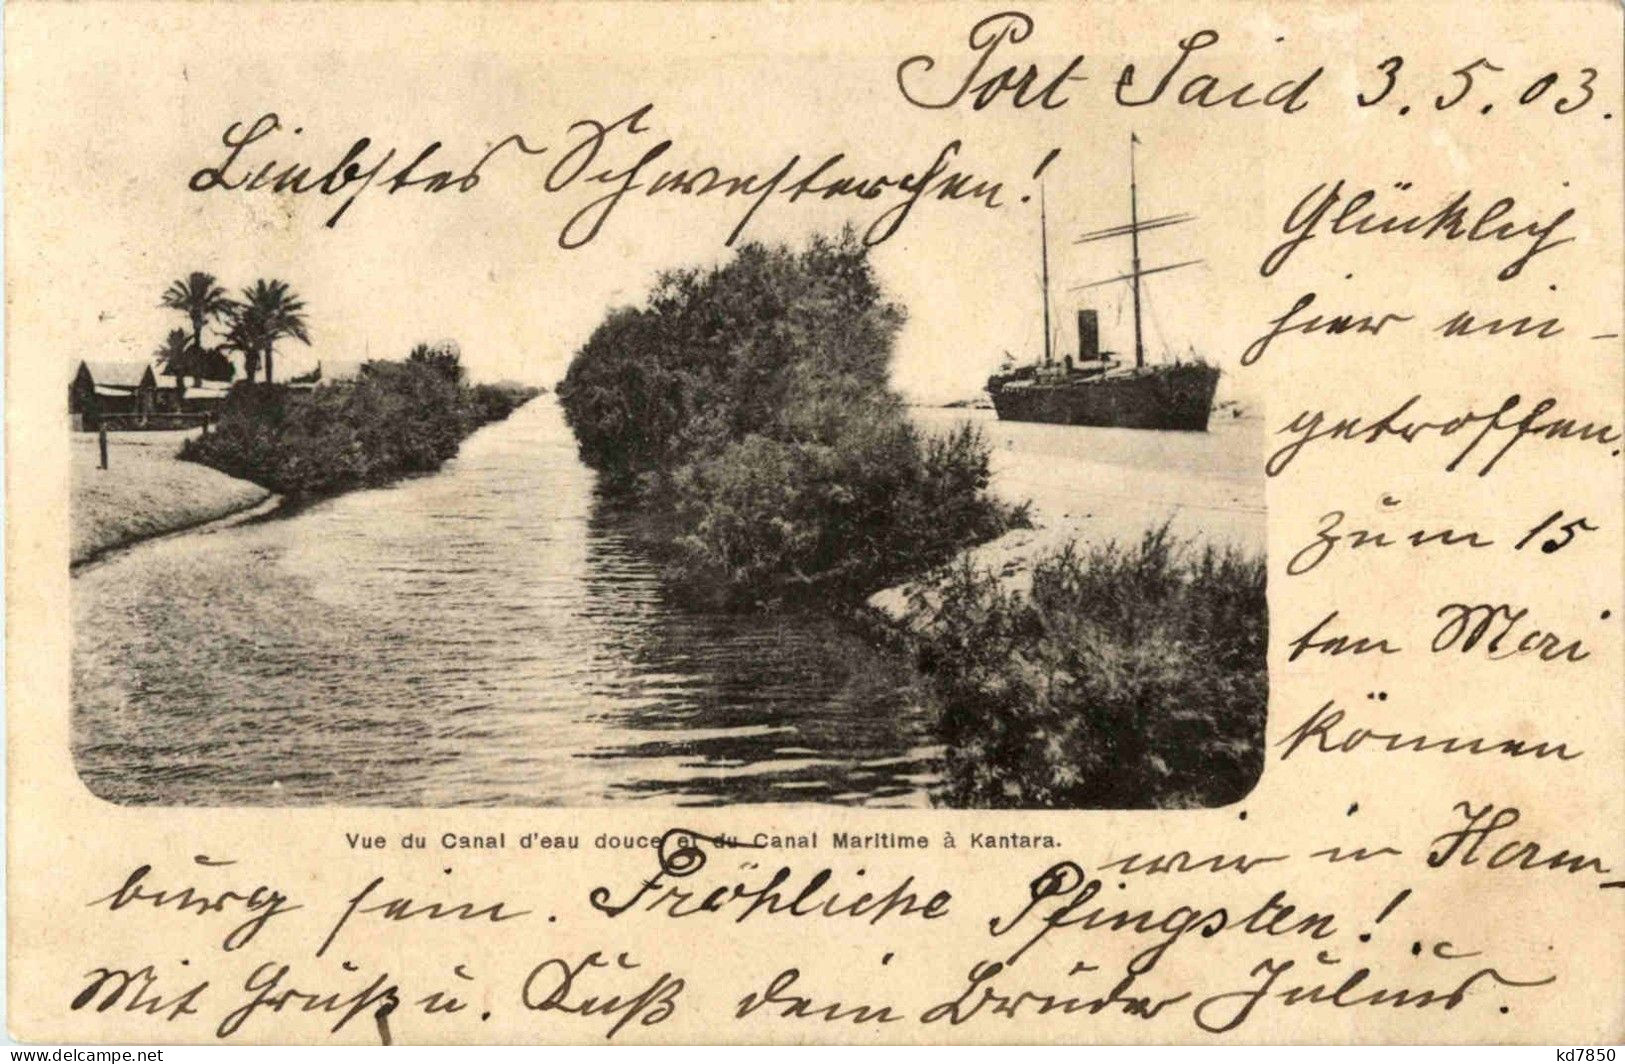 Port Said 3.5.03.
Liebstes Schwesterchen!
Glücklich
hier ein-
getroffen,
zum 15
ten Mai
können
wir in Ham-
burg sein. Fröhliche Pfingsten!
Mit Gruß u. Kuß dein Bruder Julius.
Vue du Canal d'eau douce et du Canal Maritime à Kantara.
www.delcampe.net
kd7850